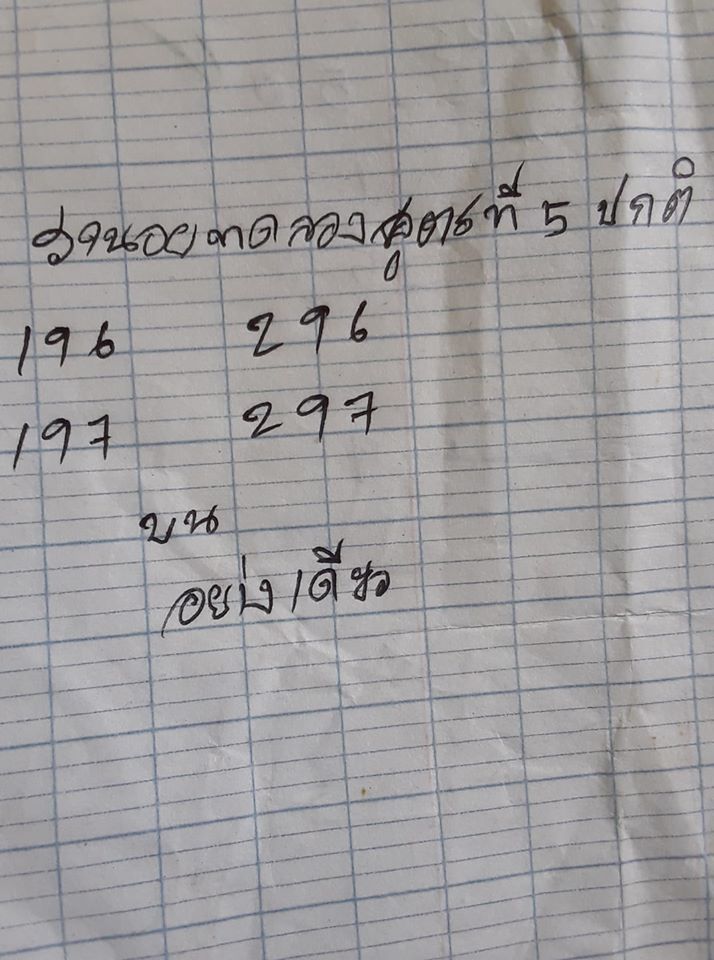 ฮานอยทดลองสูตรที่ 5 ปกติ
196 296
197 297
บน
อย่างเดียว